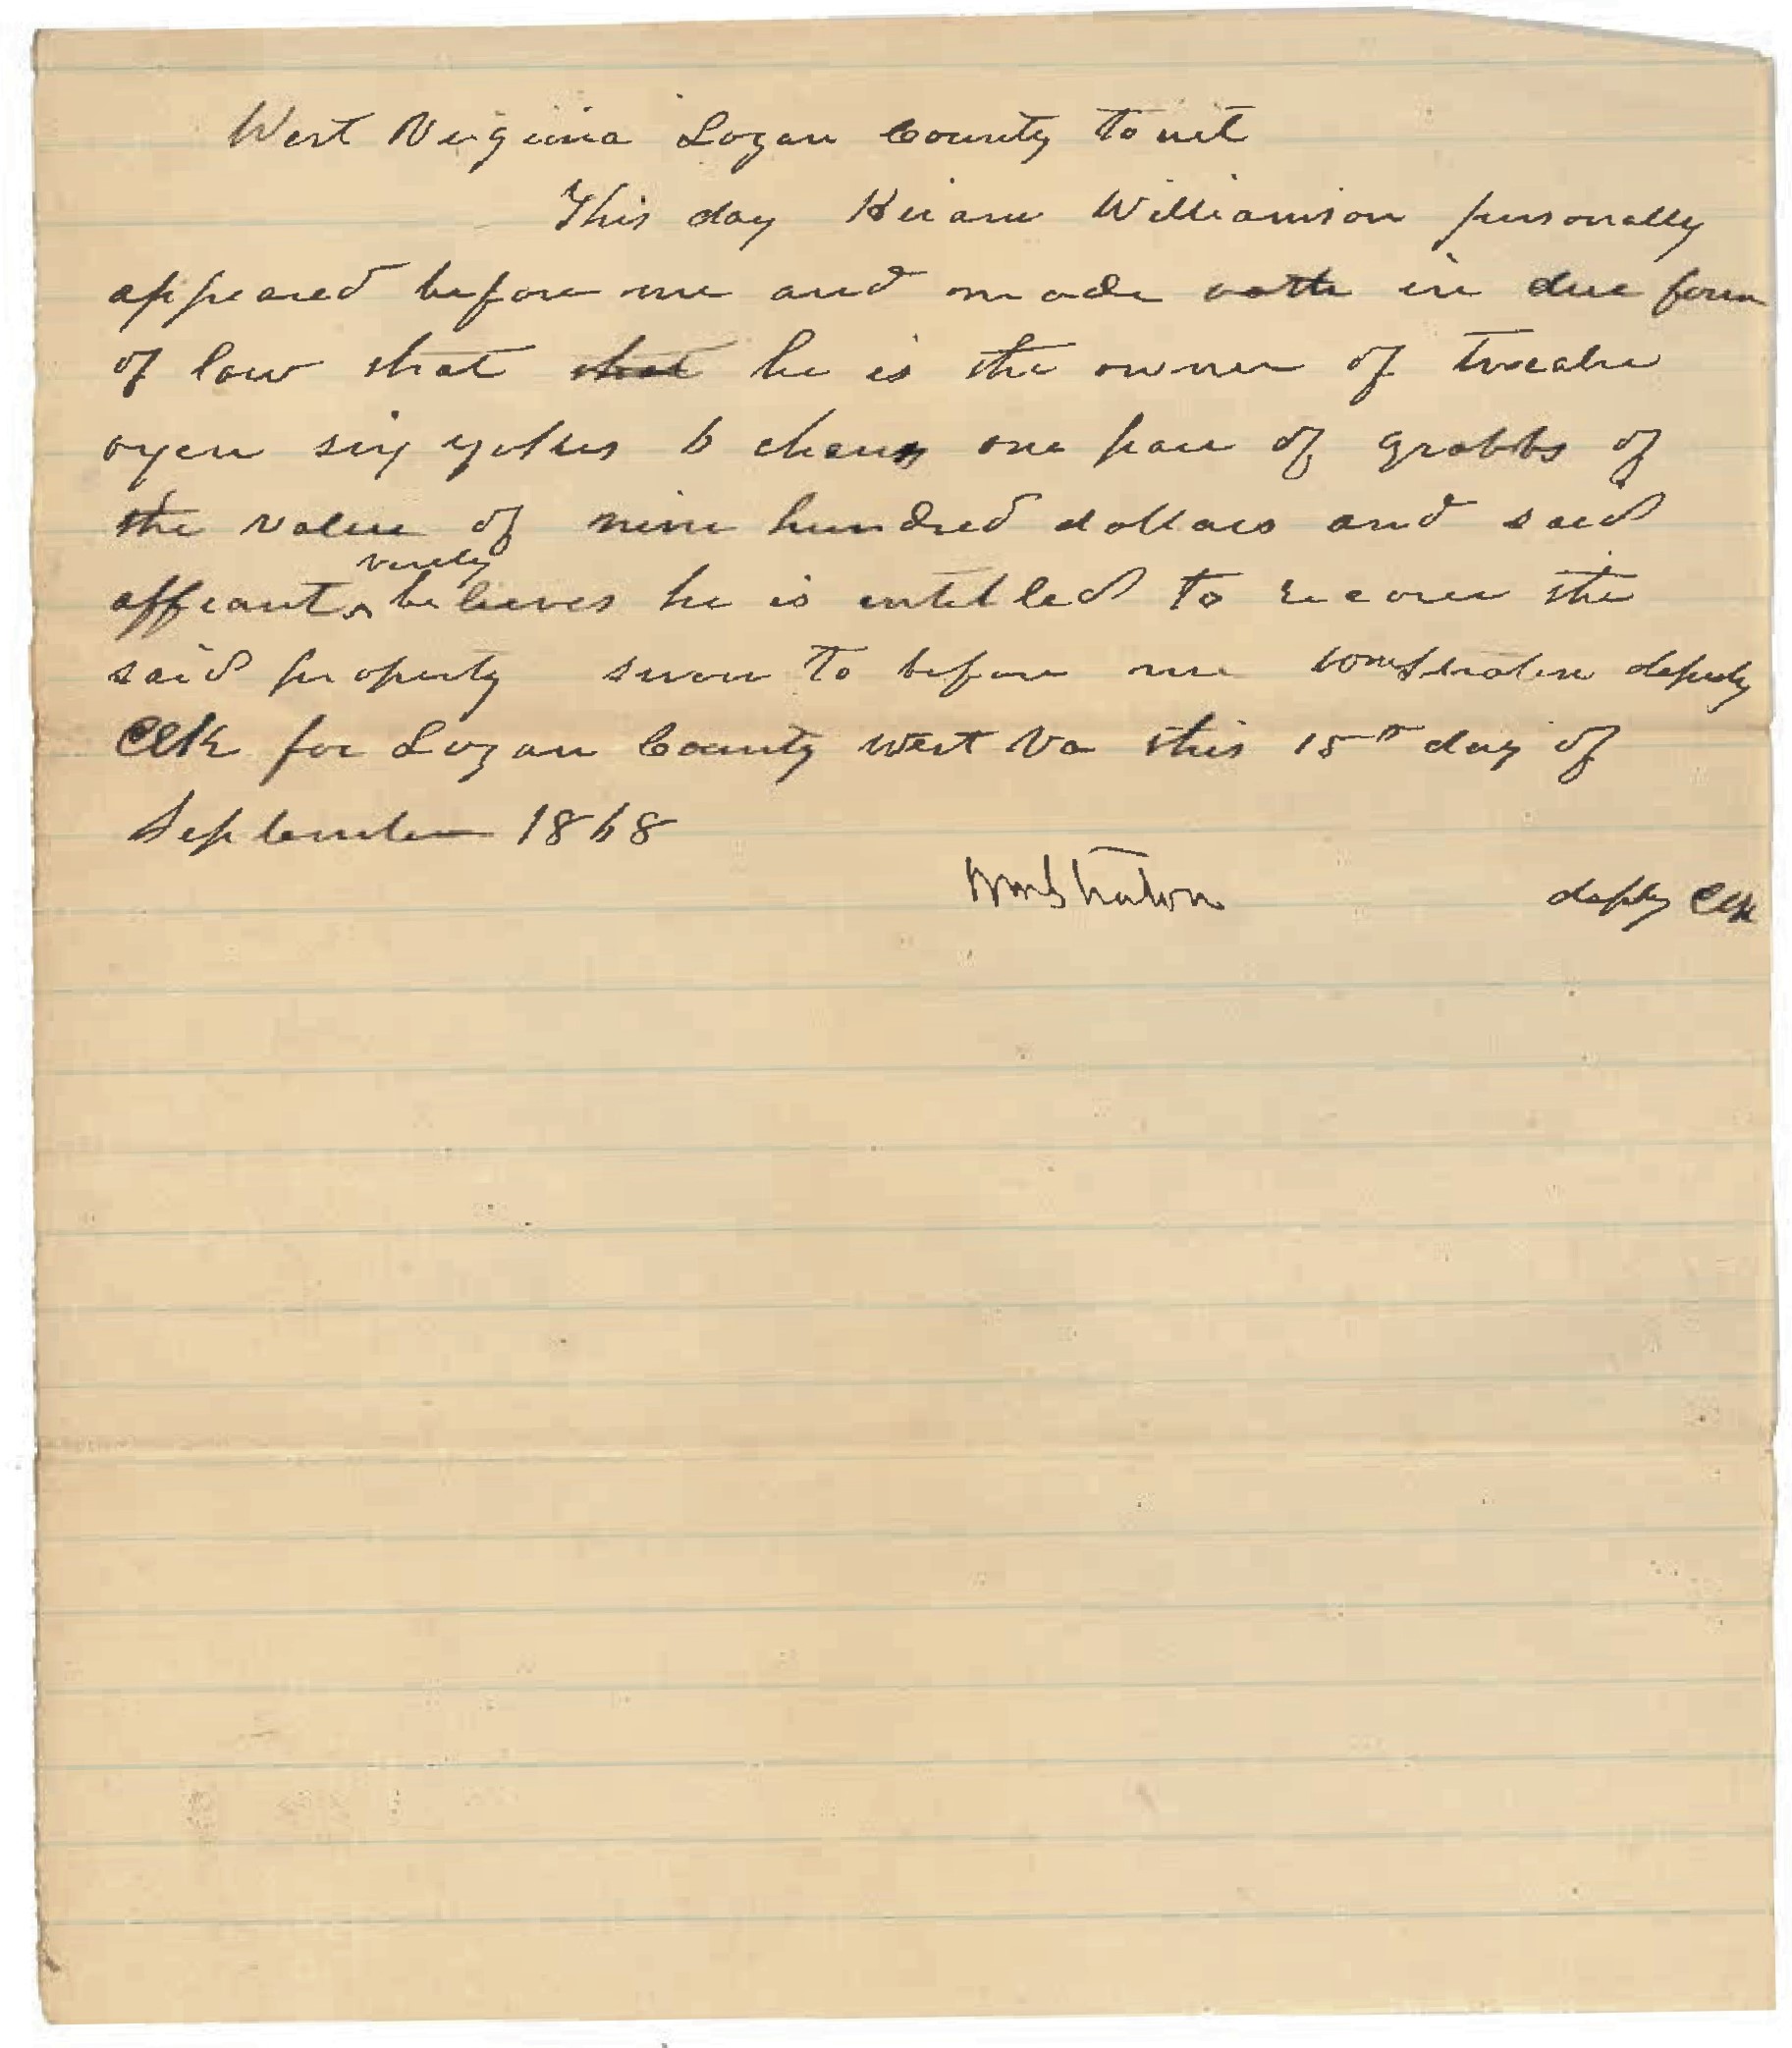 West Virginia Logan County to wit
This day Hiram Williamson personally
appeared before me and made oath in due form
of law that that he is the owner of twealve
oxen six yokes 6 chens one pair of grabbs of
the value of nine hundred dollars and said
affiant ^verily believes he is entitled to recover the
said property sworn to before me Wm Straton deputy
Clk for Logan County West Va this 15th day of
September 1868
Wm Straton deputy Clk